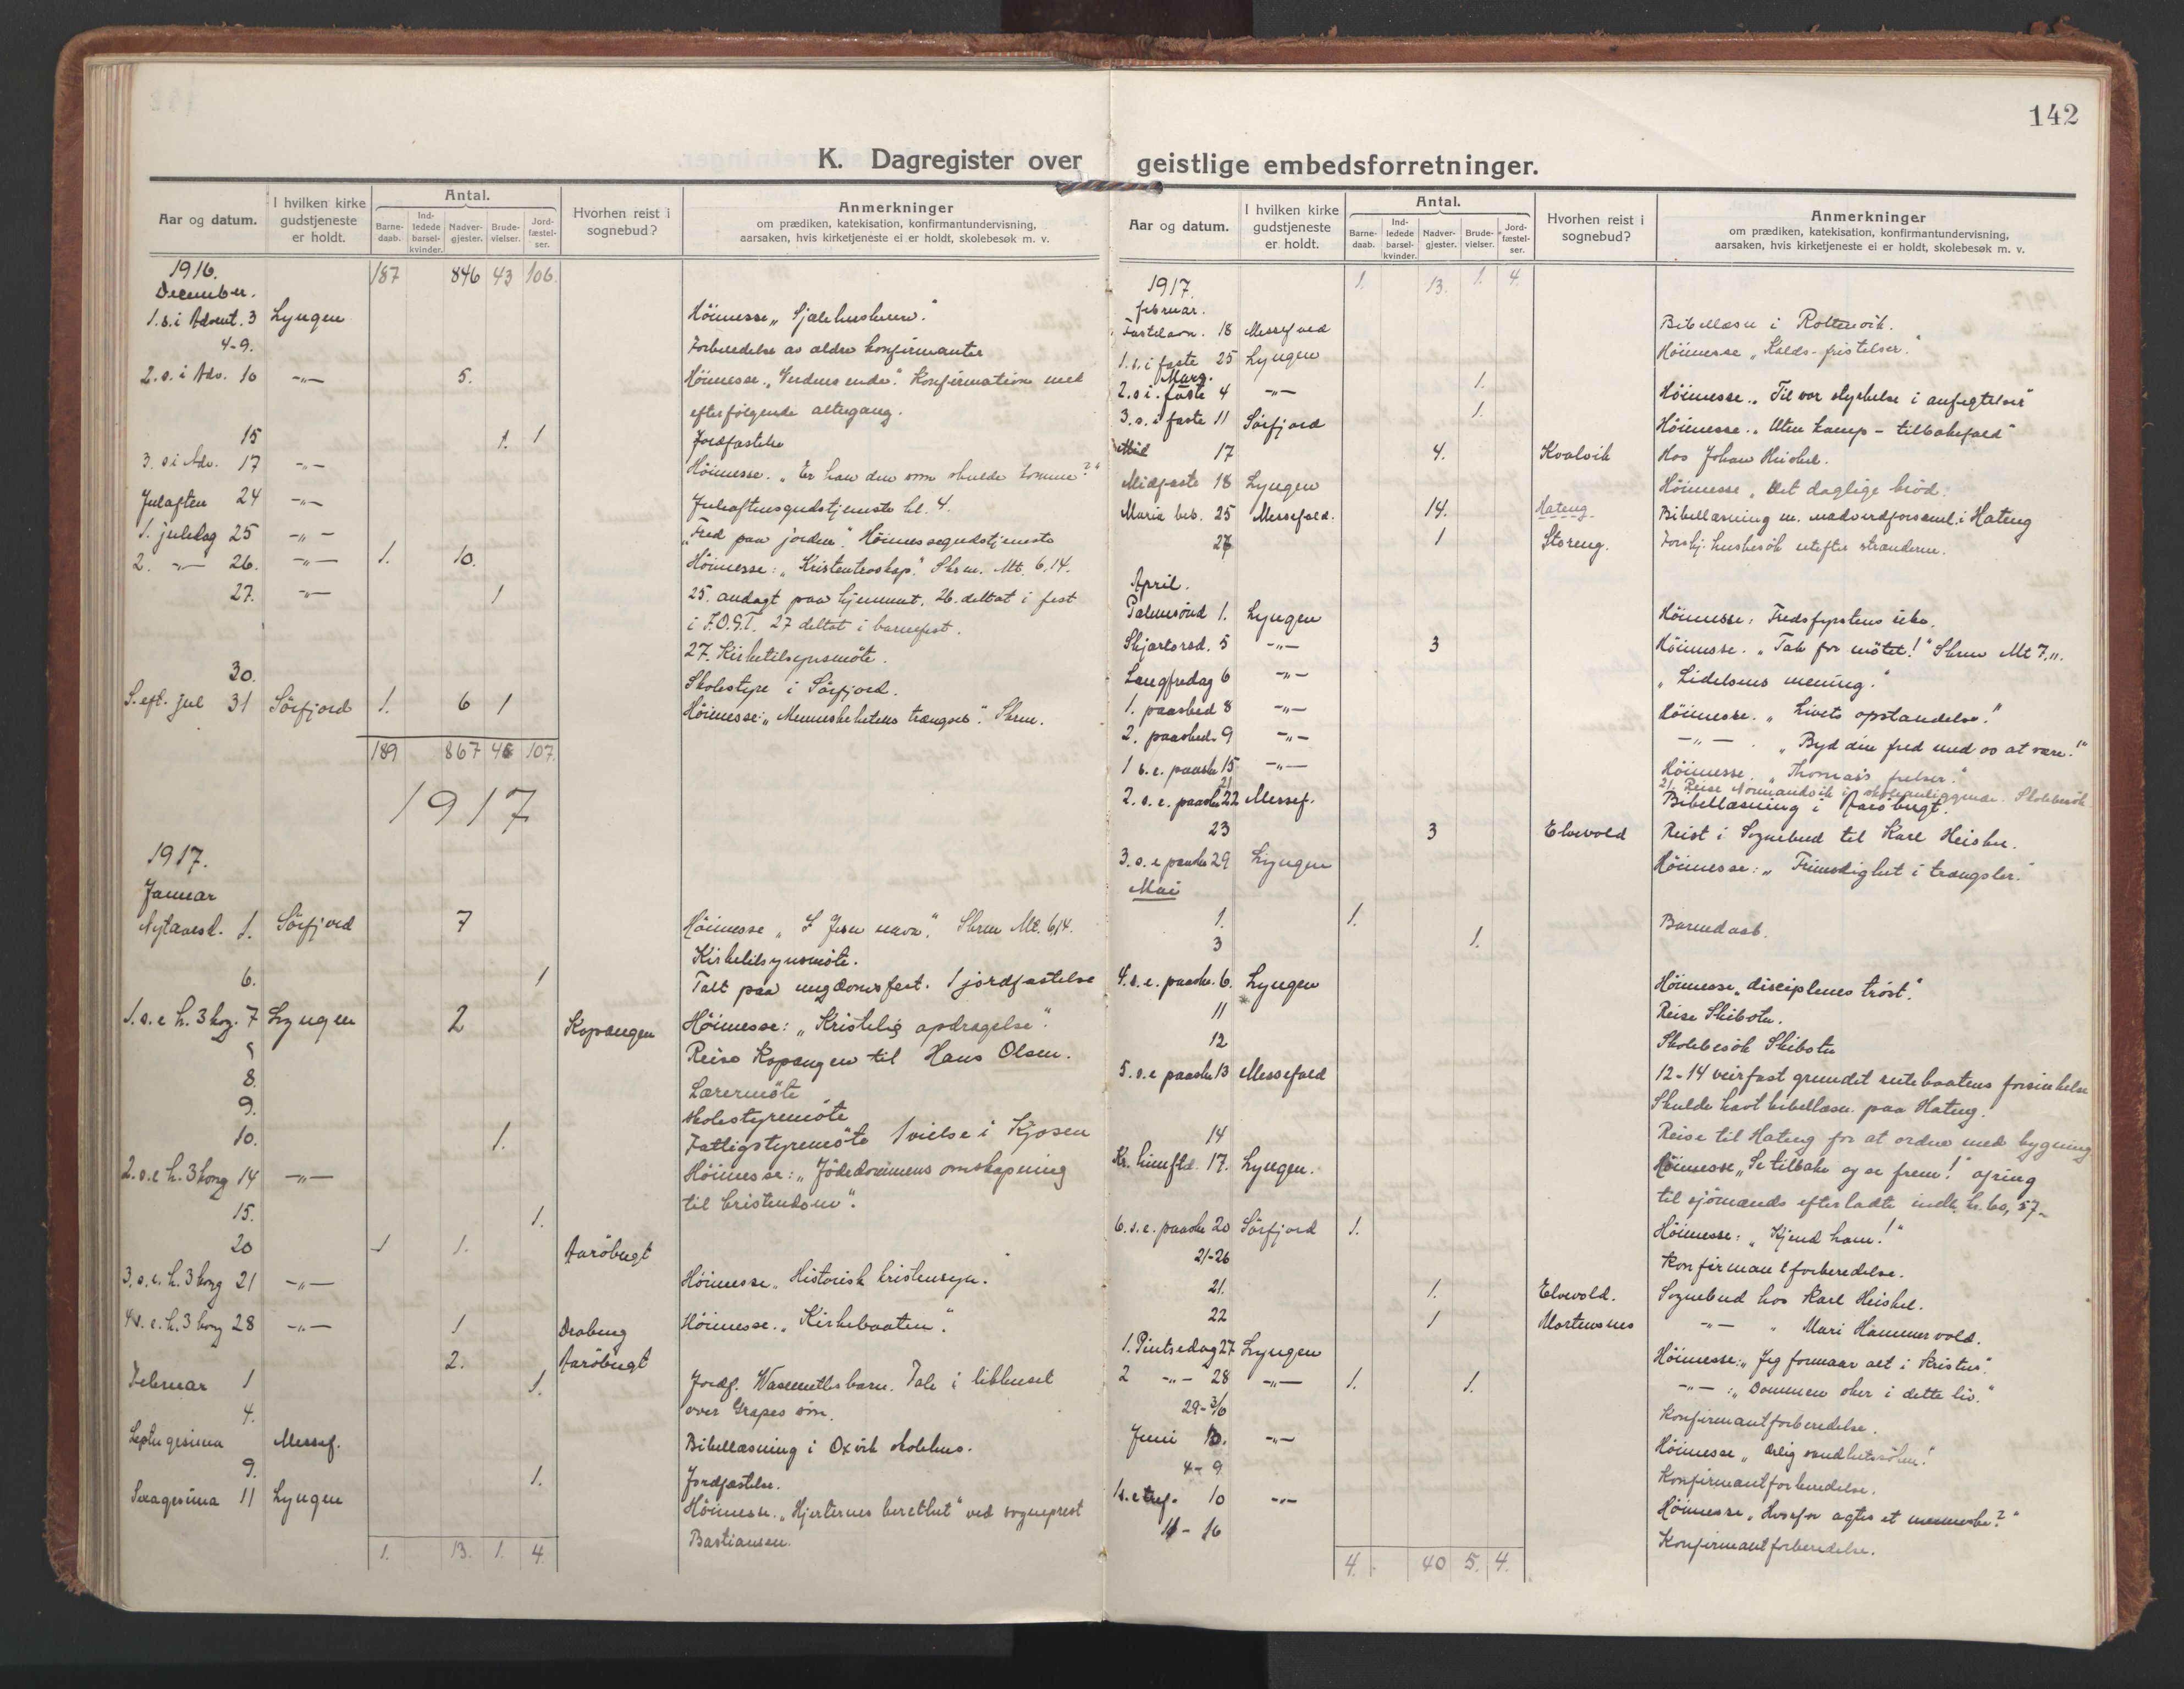 142
K. Dagregister over geistlige embedsforretninger.
Aar og datum. | I hvilken kirke gudstjeneste er holdt. | Antal. Barne-daab. | Ind-ledede barsel-kvinder. | Nadver-gjester. | Brude-vielser. | Jord-fæstel-ser. | Hvorhen reist i sognebud? | Anmerkninger om prædiken, katekisation, konfirmantundervisning, aarsaken, hvis kirketjeneste ei er holdt, skolebesøk m. v.
1916. 187 846 43 106
December.
1. s. i Advent. 3 Lyngen Höimesse „
4-9. Forberedelse av ældre konfirmanter
2. s. i Adv. 10 -"- 5. Höimesse. „Verdens ende". Konfirmation med
efterfölgende altergang.
15 1. 1 Jordfæstelse
3. s i Adv. 17 -"- Höimesse. „Er han den som skulde komme?"
Juleaften 24 -"- Juleaftensgudstjeneste kl. 4.
1. juledag 25 -"- „Fred paa jorden". Höimessegudstjeneste
2. -"- 26. -"- 1. 10. Höimesse: „Kristentroskap". Skrm. Mt. 6,14.
27. -"- 1 25. andagt paa hjemmet. 26. deltat i fest
i I.O.G.T. 27 deltat i barnefest.
27. Kirketilsynsmöte.
30. Skolestyre i Sörfjord.
S. eft. jul 31 Sörfjord 1. 6 1 Höimesse: „Menneskehetens trængsel". Skrm.
189 867 46 107
1917
1917.
Januar
Nytaarsd. 1. Sörfjord 7 Höimesse „I Jesu navn". Skrm Mt. 6,14.
Kirketilsynsmöte.
6. 1 Talt paa ungdomsfest. 1 jordfæstelse
1. s. e h. 3 kog. 7 Lyngen 2 Kopangen Höimesse: „Kristelig opdragelse".
Reise Kopangen til Hans Olsen.
8. Lærermöte
9. Skolestyremöte
10. 1. Fattigstyremöte 1 vielse i Kjosen
2. s. e h. 3 kong 14 -"- Höimesse: „Jödedommens omskapning
til kristendom".
15. 1.
20 1 1. Aaröbugt
3. s. e. h. 3 kong 21 -"- Höimesse „Historisk kristensyn.
4 s. e. h. 3 kong 28 -"- 1 Drabeng Höimesse. „Kirkebaaten".
2. Aaröbugt
Februar 1 1. Jordf. barn. Tale i likhuset
4. over Grapes sön.
Septugesima Messef. Bibellæsning i Oxvik skolehus.
9. 1. Jordfæstelse.
Sexagesima 11 Lyngen Höimesse. „Hjerternes " ved sogneprest
Bastiansen.
1. 13. 1. 4.
Aar og datum. | I hvilken kirke gudstjeneste er holdt. | Antal. Barne-daab. | Ind-ledede barsel-kvinder. | Nadver-gjester. | Brude-vielser. | Jord-fæstel-ser. | Hvorhen reist i sognebud? | Anmerkninger om prædiken, katekisation, konfirmantundervisning, aarsaken, hvis kirketjeneste ei er holdt, skolebesøk m. v.
1917. 1. 13. 1. 4.
februar.
Fastelavn. 18 Messefald Bibellæsn i Rottenvik.
1. s. i faste 25 Lyngen Höimesse „Kalds-fristelser."
Mars.
2. s i. faste 4 -"- 1. Höimesse. „Til vor styrkelse i anfegtelser"
3. s. i faste 11 Sörfjord 1. Höimesse. „Uten kamp - tilbakefald"
17 4. Kvalvik Hos Johan Heiskel.
Midfaste 18 Lyngen Höimesse „Det daglige bröd.
Maria beb. 25 Messefald. 14. Hateng. Bibellæsning m. nadverdforsaml. i Hateng
27 1 Storeng. Forskj. husbesök utefter strandene.
April.
Palmesönd 1. Lyngen Höimesse: Fredsfyrstens rike.
Skjærtorsd. 5 -"- 3 Höimesse. „Tak for mötet!" Skrm Mt 7,11.
Langfredag 6 -"- „Lidelsens mening."
1. paasked 8 -"- Höimesse. „Livets opstandelse."
2. paasked. 9 -"- -"- . „Byd din fred med os at være!"
1 s. e. paaske 15 -"- Höimesse. „Thomas's frelser."
21 21. Reise Normandvik i skoleanliggende. Skolebesök
2. s. e. paaske 22 Messef. Bibellæsning i Aaröbugt.
23 3 Elvevold Reist i Sognebud til Karl Heiskel.
3. s. e paaske 29 Lyngen Höimesse: „Frimodighet i trængsler."
Mai
1. 1. Barnedaab.
3 1.
4. s. e. paaske. 6. Lyngen Höimesse „disciplenes tröst".
11 Reise Skibotn.
12 Skolebesök Skibotn
5. s. e paaske 13 Messefald 12-14 veirfast grundet rutebaatens forsinkelse
Skulde havt bibellæsn. paa Hateng.
14 Reise til Hateng for at ordne med bygning
Kr. himftd. 17. Lyngen. Höimesse „Se tilbake og se frem!" ofring
til sjömænds efterladte indk. kr. 60,57.
6. s. e. paaske 20 Sörfjord 1. Höimesse: „Kjend ham!"
21-26 Konfirmantforberedelse.
21. 1. Elvevold. Sognebud hos Karl Heiskel.
22 1 Mortensnes -"- " Mari Hammervold.
1. Pintsedag 27 Lyngen Höimesse: „Jeg formaar alt i Kristus".
2 -"- 28 -"- 1. 1. -"- : „Dommen sker i dette liv."
29-3/6 Konfirmantforberedelse.
Juni 3. -"- Höimesse „Ærlig sandhetssöken!
4-9 Konfirmantforberedelse.
1. s. e tref. 10 -"- Höimesse „Hvorfor agtes et menneske?"
11-16 Konfirmantforberedelse.
4. 40 5. 4.